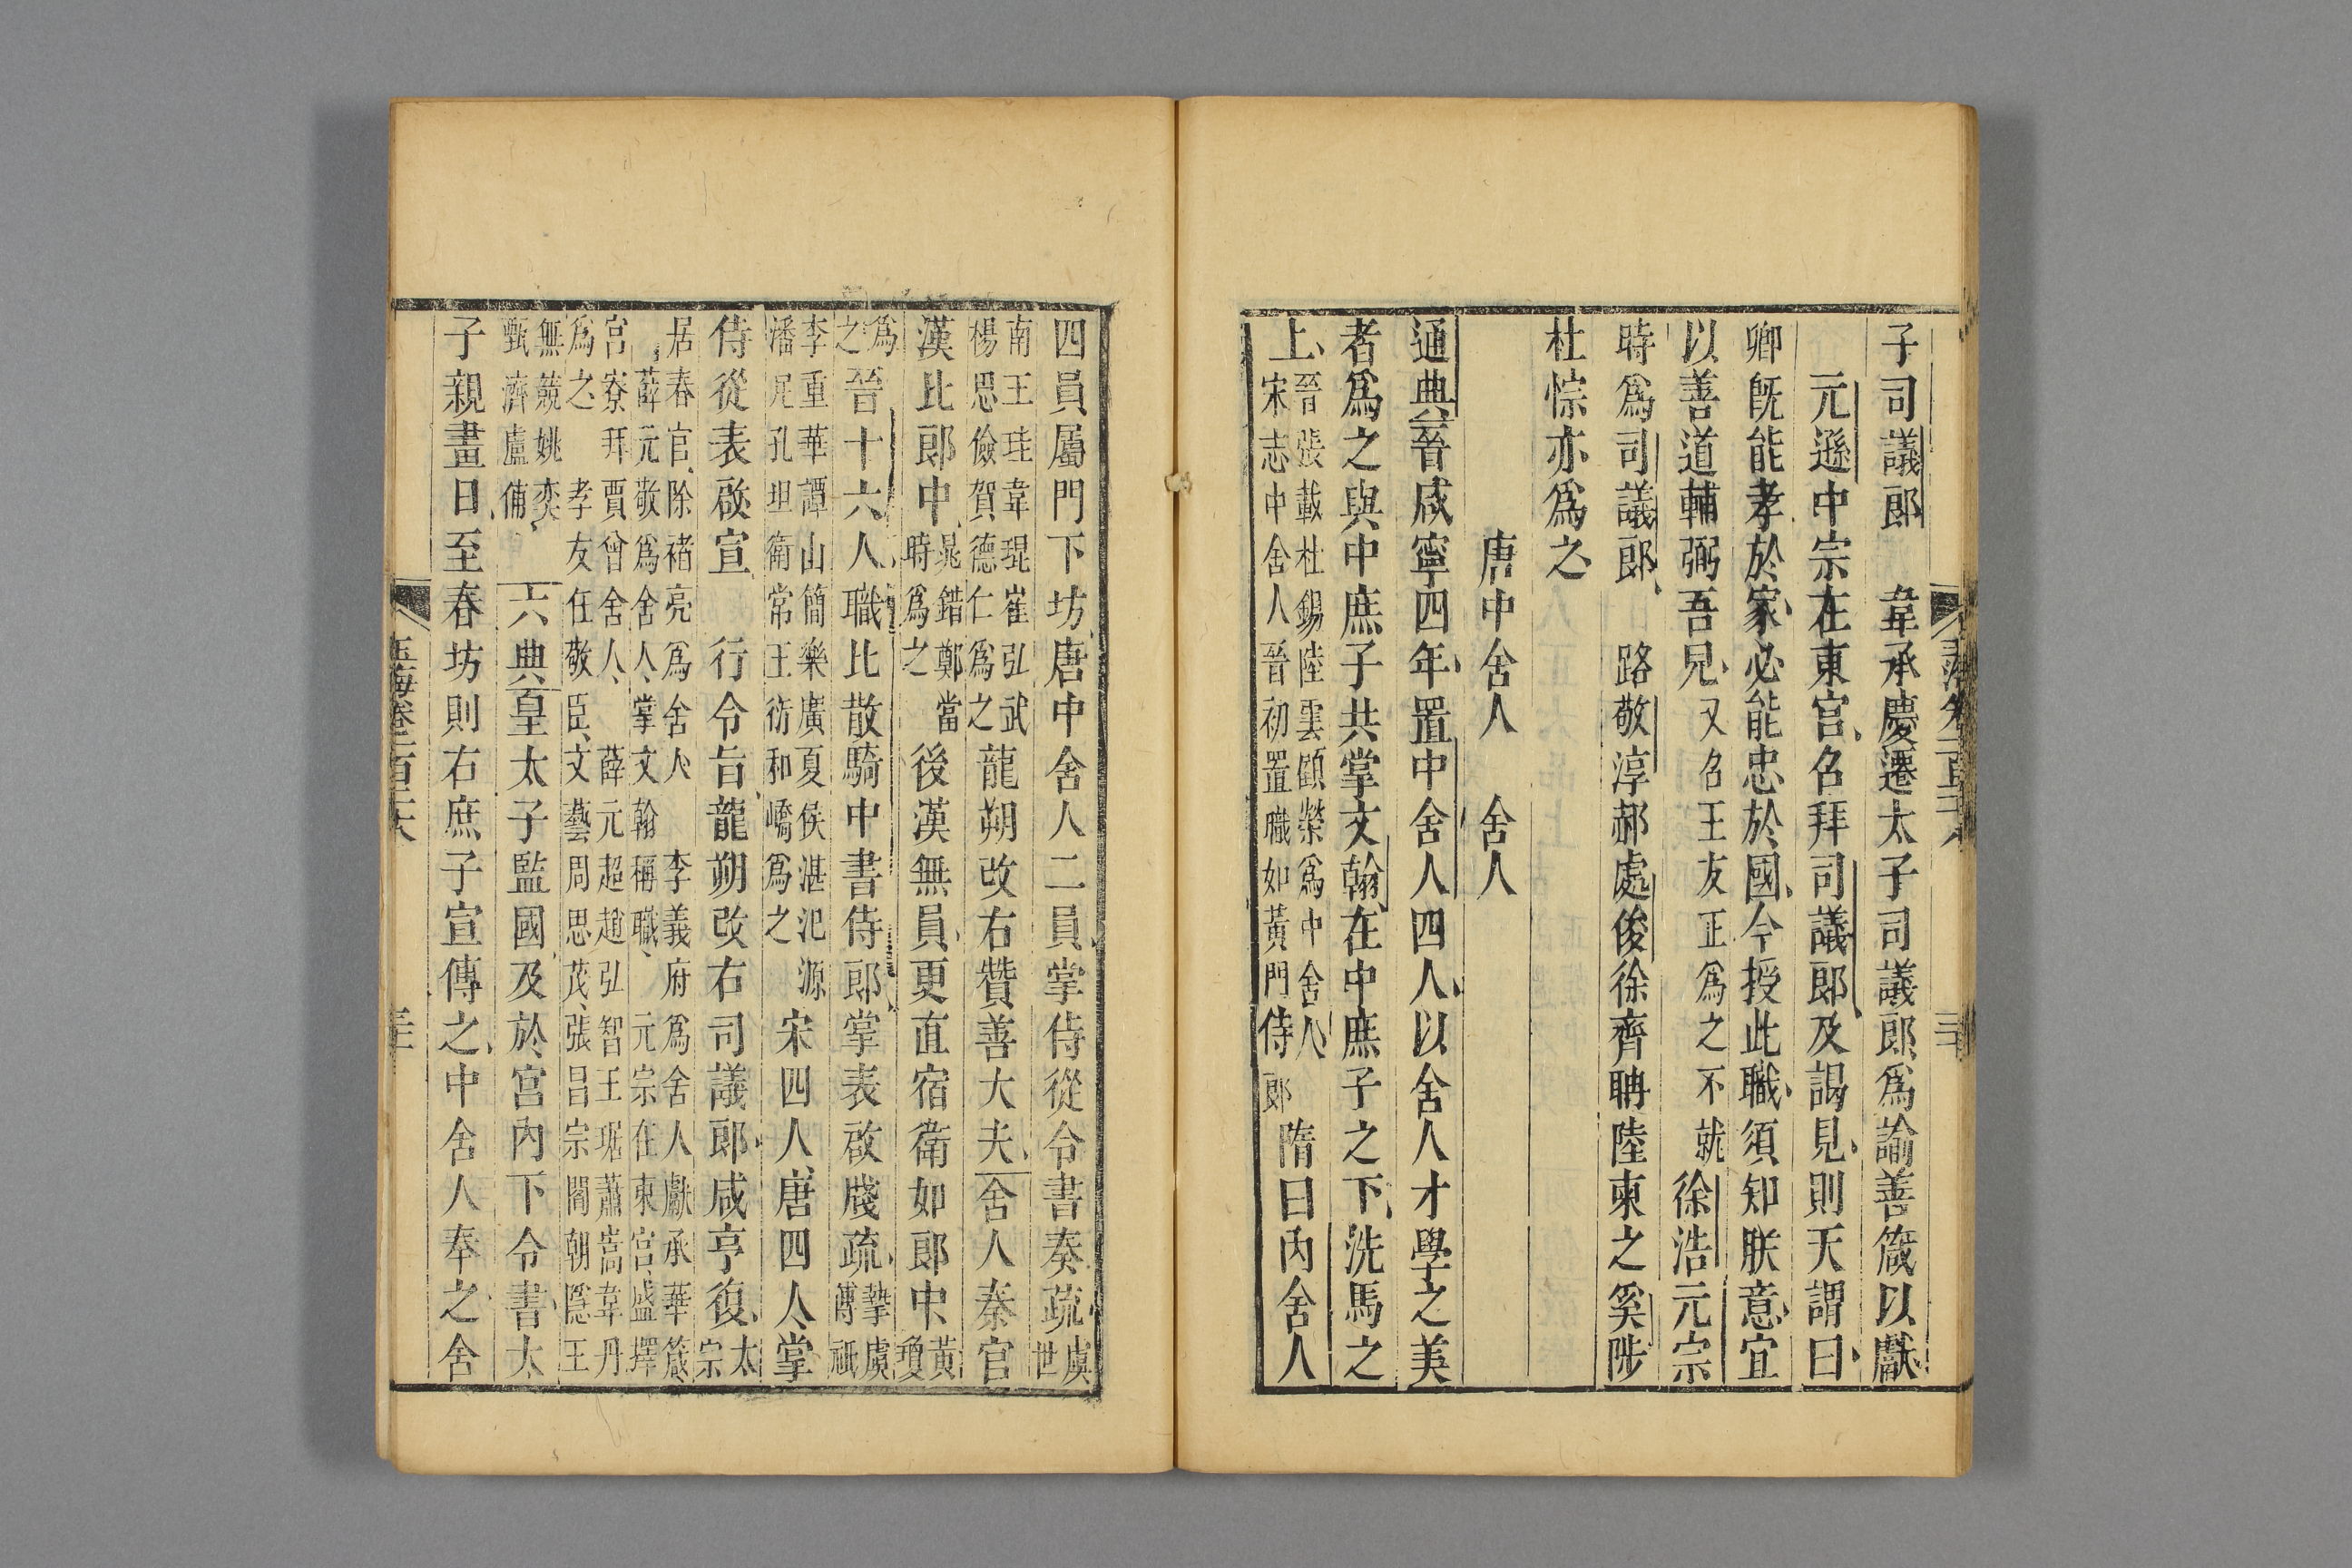 子司議郎　韋承慶遷太子司議郎爲諭善箴以獻
元遜中宗在東宮名拜司議郎及謁見則天謂曰
卿旣能孝於家必能忠於國今授此職須知朕意宜
以善道輔弼吾兒又名王友正爲之不就徐浩元宗
時爲司議郎　路敬淳郝處俊徐齊聃陸柬之奚陟
杜悰亦爲之
唐中舍人　舍人
通典晉咸寧四年置中舍人四人以舍人才學之美
者爲之與中庶子共掌文翰在中庶子之下洗馬之
上晉張載杜錫陸雲顧榮爲中舍人
宋志中舍人晉初置職如黃門侍郎隋曰內舍人
四員屬門下坊唐中舍人二員掌侍從令書奏疏虞世
南王珪韋琨崔弘武
楊思儉賀德仁爲之龍朔改右贊善大夫舍人秦官
漢比郎中晁錯鄭當
時爲之後漢無員更直宿衛如郎中黃瓊
爲之晉十六人職比散騎中書侍郎掌表啟牋疏摯虞
傅祗
李重華譚山簡樂廣夏侯湛汜源
潘尼孔坦衛常王衍和嶠爲之宋四人唐四人掌
侍從表啟宣　行令旨龍朔改右司議郎咸亨復太宗
居春官除褚亮爲舍人　李義府爲舍人獻承華箴
薛元敬爲舍人掌文翰稱職　元宗在東宮盛擇
宮寮拜賈曾舍人　薛元超趙弘智王琚蕭嵩韋丹
爲之孝友任敬臣文藝周思茂張昌宗閻朝隱王
無競姚奕
甄濟盧備六典皇太子監國及於宮內下令書太
子親畫日至春坊則右庶子宣傳之中舍人奉之舍